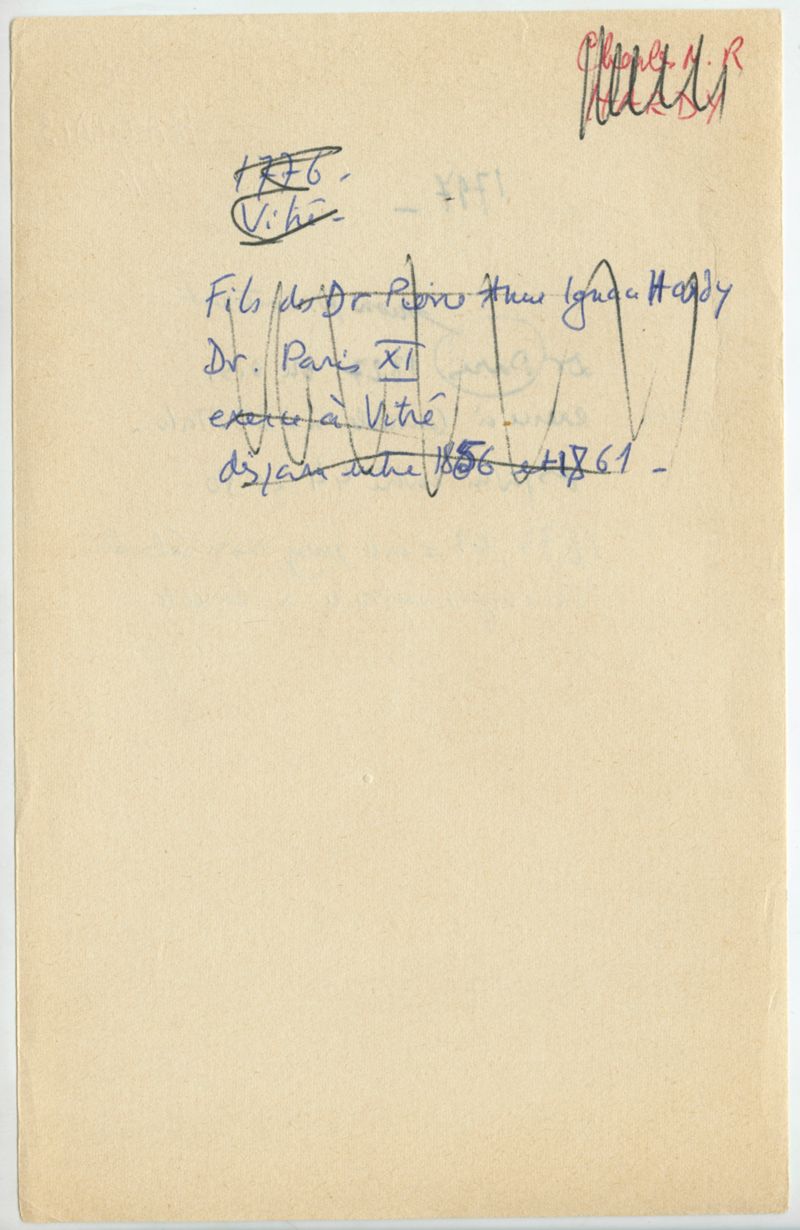 Charles M. R
HARDY
1776.
Vitré -
Fils du Dr Pierre Anne Ignace Hardy
Dr. Paris XI
exerce à Vitré
disparu entre 1856 et 1861 -
1797 -